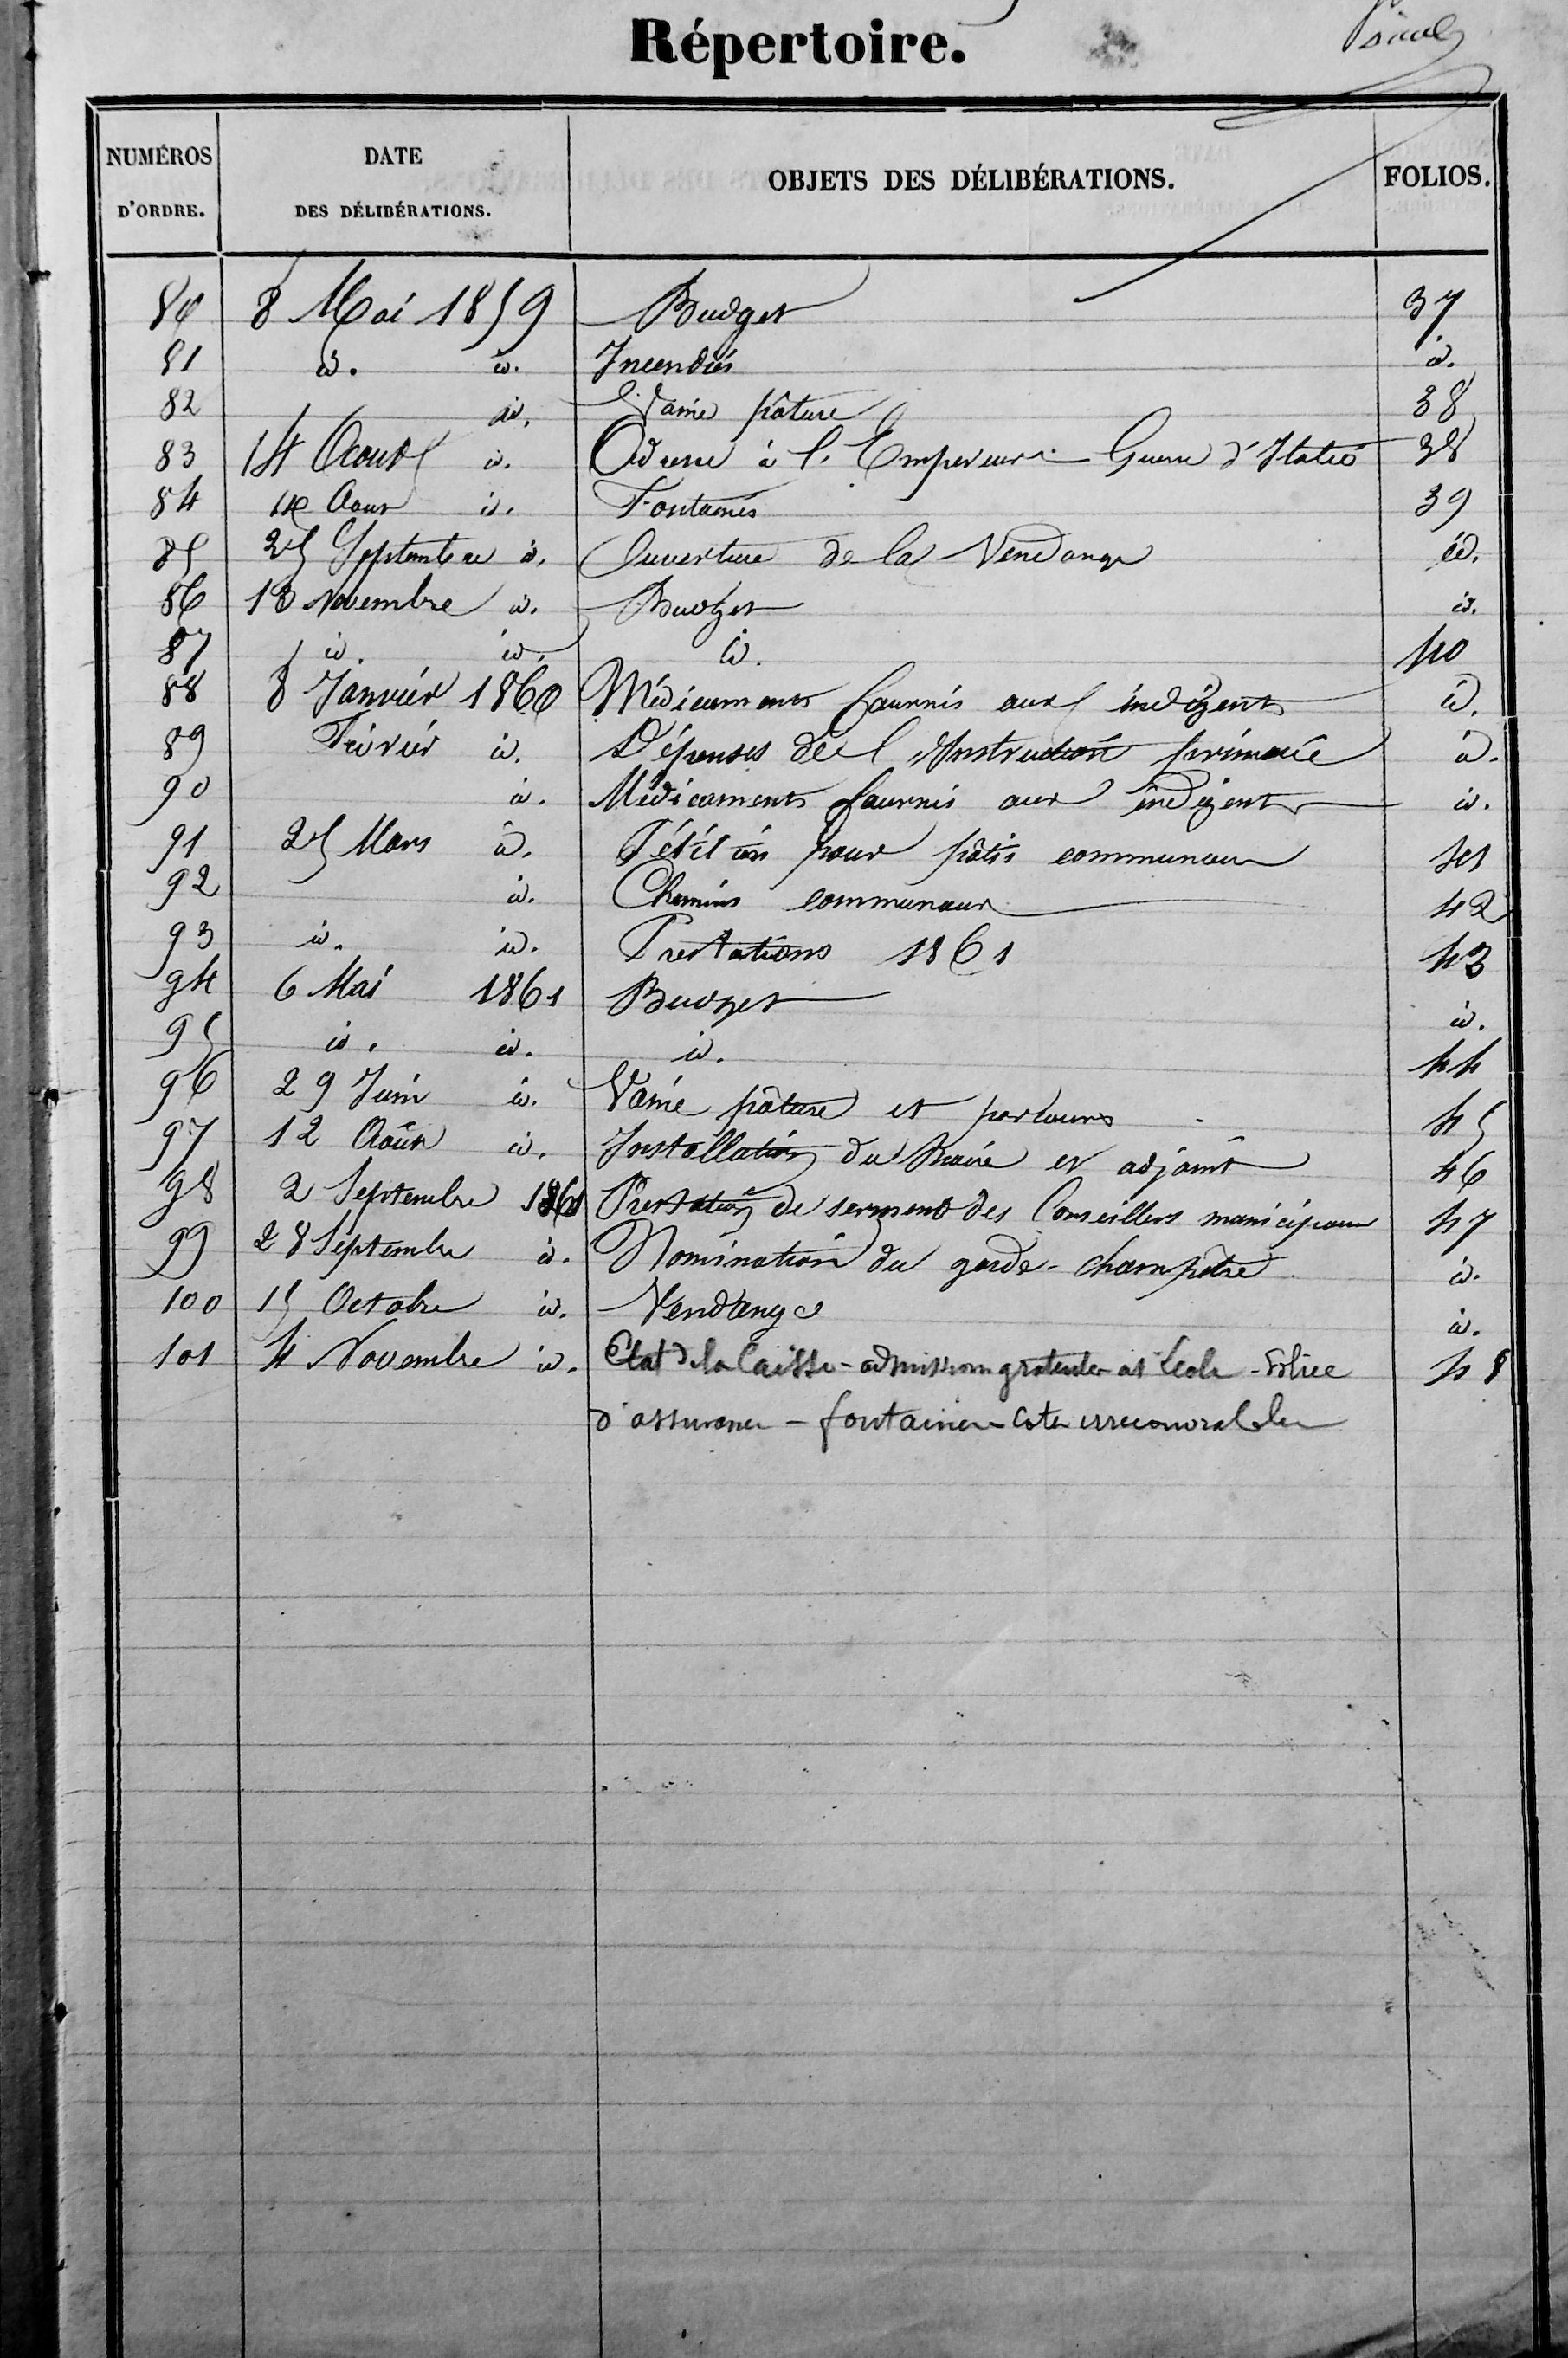 Répertoire.
NUMÉROS D'ORDRE. DATE DES DÉLIBÉRATIONS. OBJETS DES DÉLIBÉRATIONS. FOLIOS.
80 8 Mai 1859 Budget 37
81 id. id. Incendies id.
82 id. Vaine pâture 38
83 14 Aout id. Adresse à l'Empereur - Guerre d'Italie 38
84 14 Aout id. Fontaines 39
85 25 Septembre id. Ouverture de la Vendange id.
86 13 Novembre id. Budget id.
87 id. id. id. 40
88 8 Janvier 1860 Médicaments fournis aux indigents id.
89 Février id. Dépenses de l'Instruction primaire id.
90 id. Médicaments fournis aux indigents id.
91 25 Mars id. Pétition pour pâtis communaux 41
92 id. Chemins communaux 42
93 id. id. Prestations 1861 43
94 6 Mai 1861 Budget id.
95 id. id. id. 44
96 29 Juin id. Vaine pâture et parcours 45
97 12 Août id. Installation du Maire et adjoint 46
98 2 Septembre 1860 Prestation de serment des Conseillers municipaux 47
99 28 Septembre id. Nomination du garde-champêtre id.
100 15 Octobre id. Vendange id.
101 4 Novembre id. Etat de la Caisse - admission gratuite à l'école - Police 48
d'assurance - fontaine - Cotes irrecouvrables